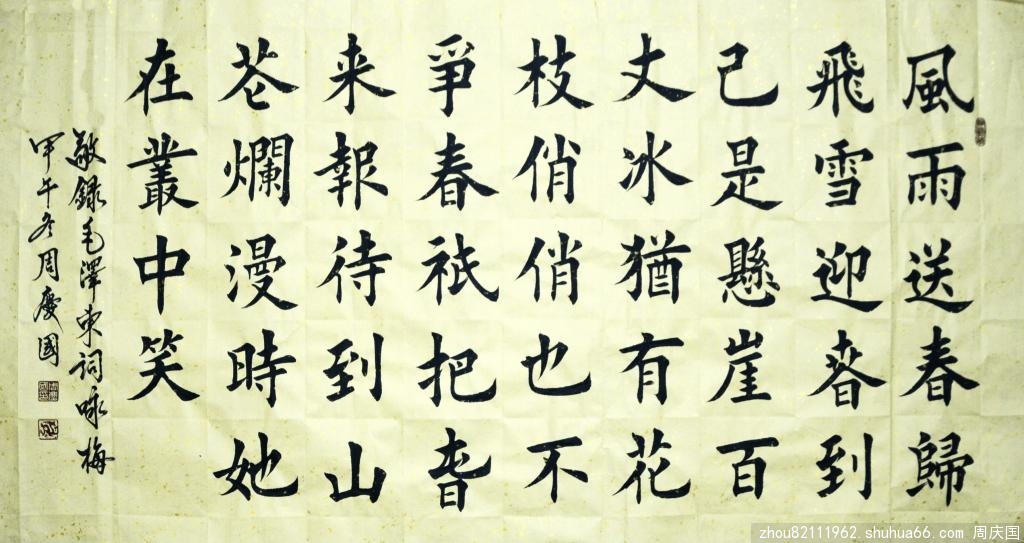 風雨送春歸
飛雪迎春到
已是懸崖百
丈冰猶有花
枝俏俏也不
爭春祇把春
来報待到山
苍爛漫時她
在叢中笑
敬録毛澤東詞咏梅
甲午冬周慶國
zhou82111962.shuhua66.com 周庆国